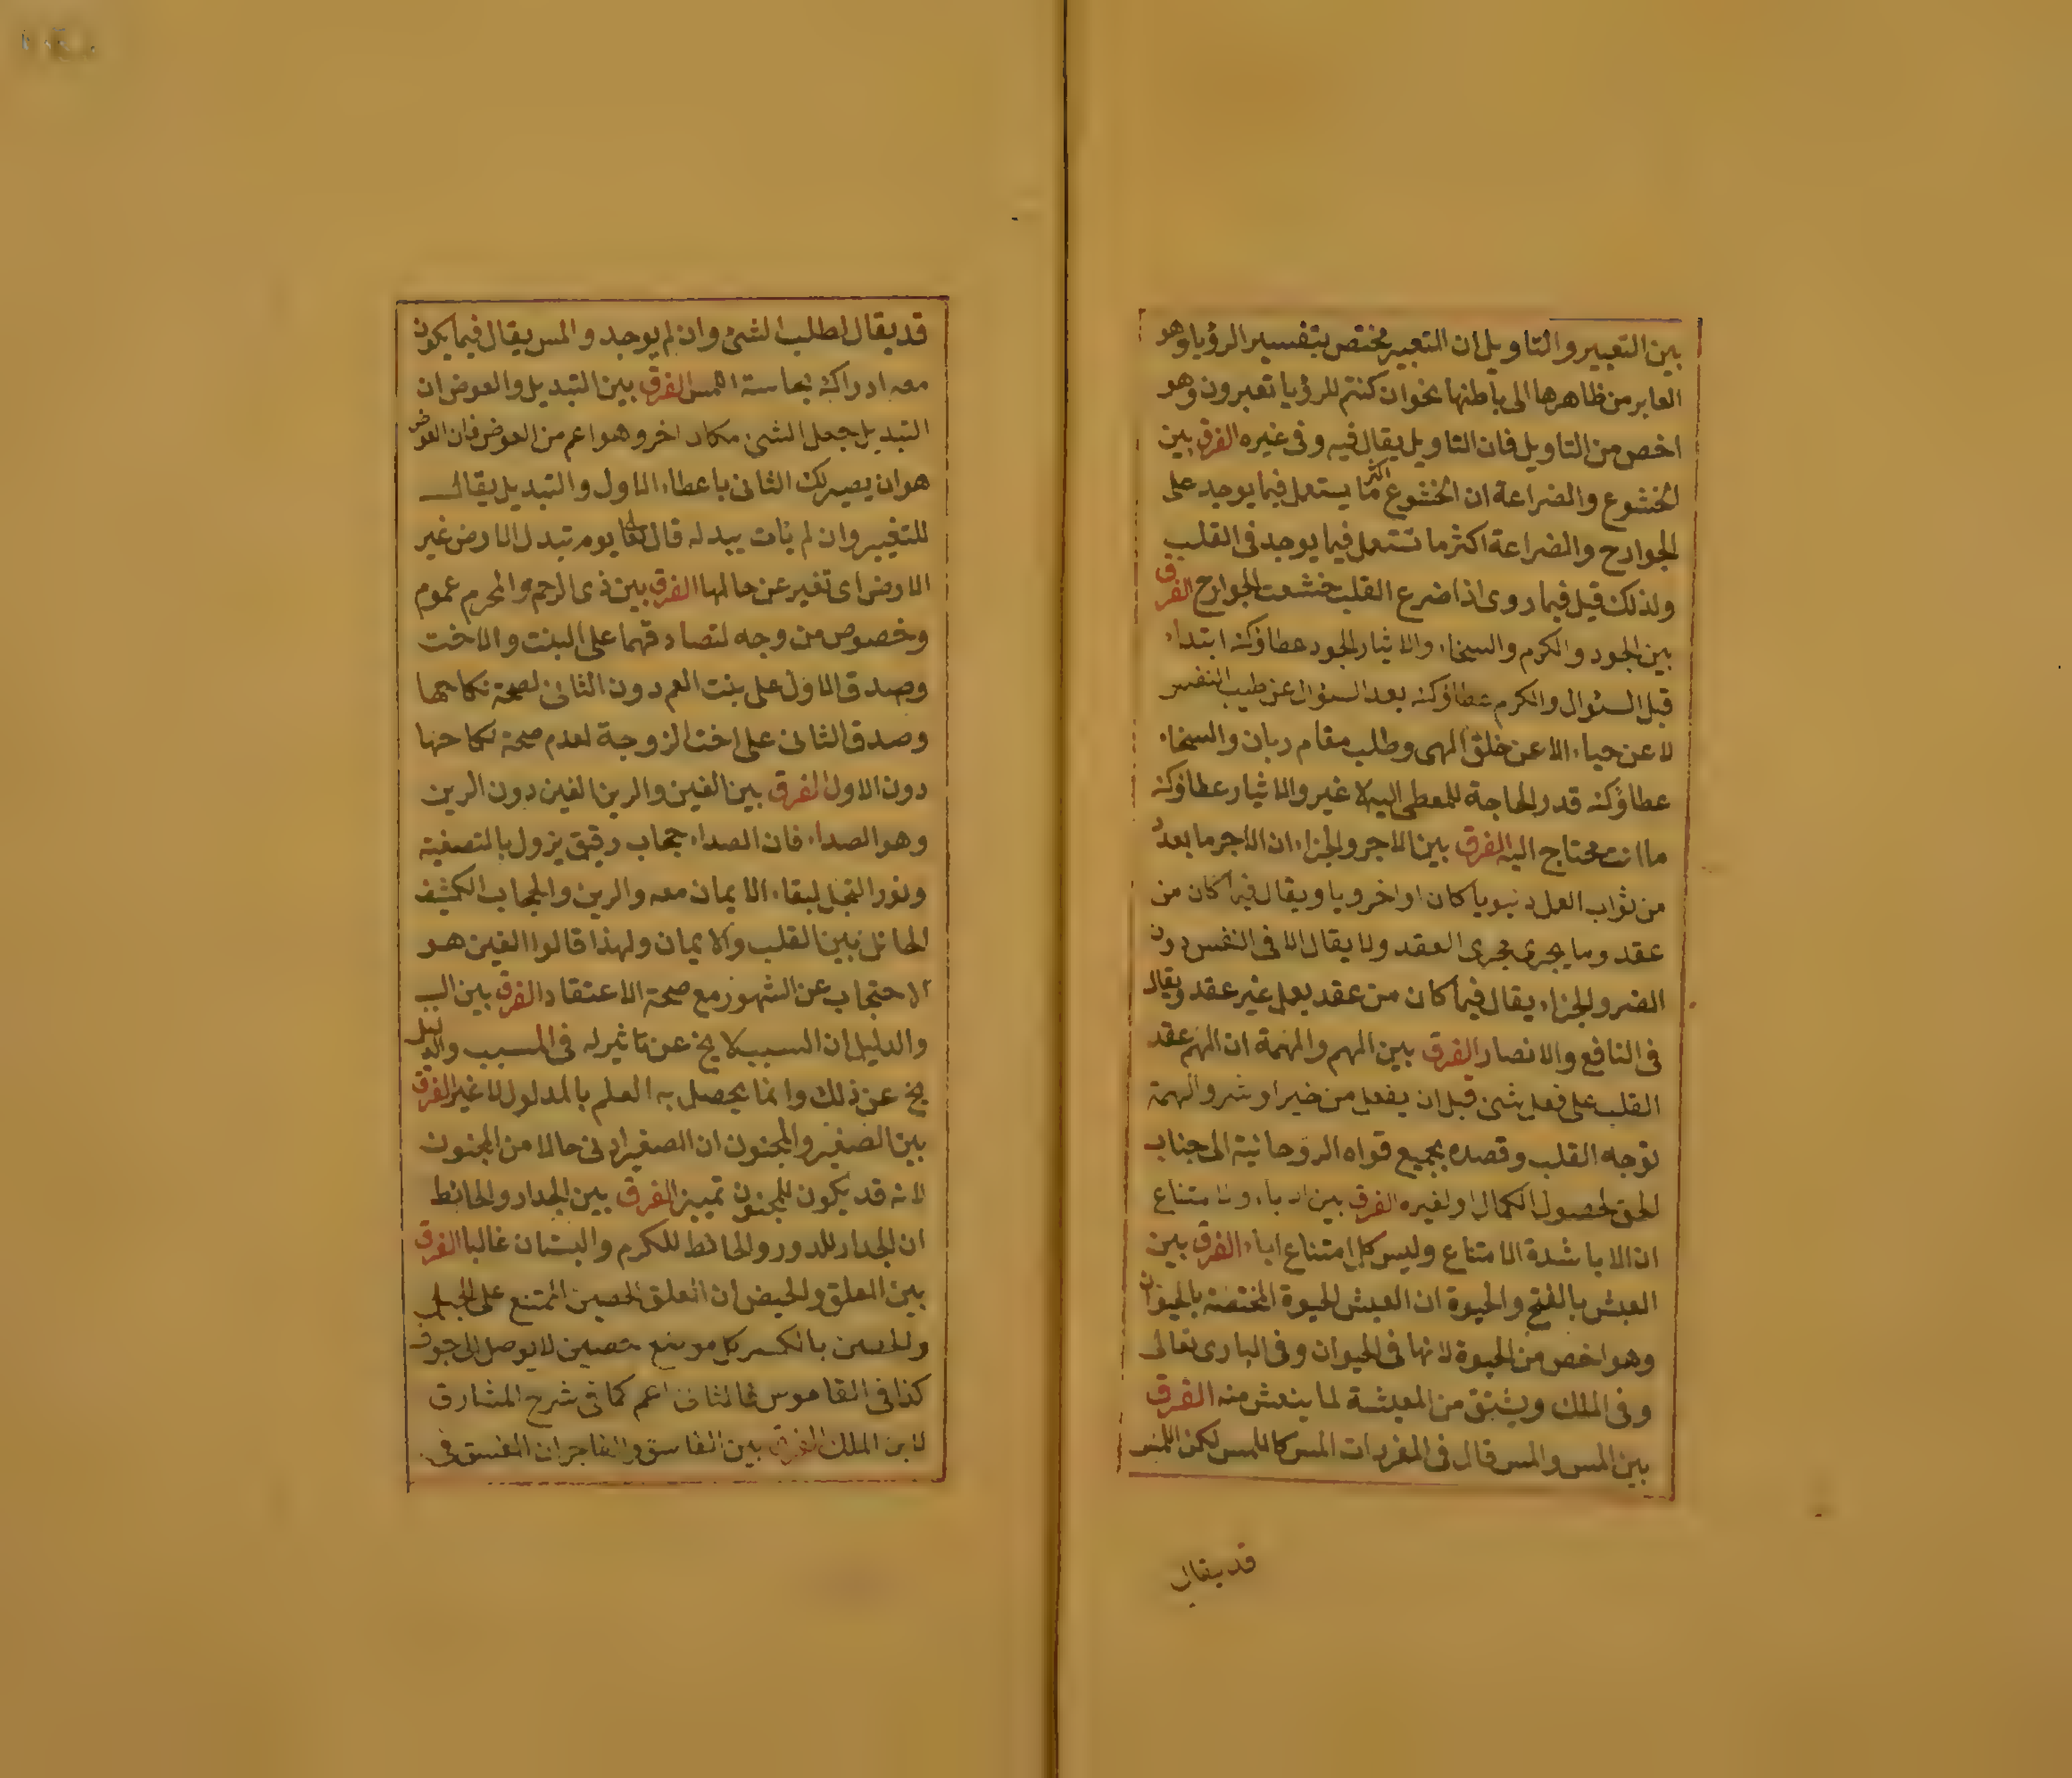 بين التعبير والتاويل ان التعبير مختص بتفسير الرؤيا وهو
العابر من ظاهرها الى باطنها نحو ان كنتم للرؤيا تعبرون وهو
اخص من التاويل فان التاويل يقال فيه وفى غيره الفرق بين
الخشوع والضراعة ان الخشوع اكثر ما يستعمل فيما يوجد على
الجوارح والضراعة اكثر ما تستعمل فيما يوجد فى القلب
ولذلك قيل فيما روى اذا ضرع القلب خشعت الجوارح الفرق
بين الجود والكرم والسخاء والايثار الجود عطاؤكه ابتداء
قبل السئوال والكرم عطاؤكه بعد السئوال عن طيب النفس
لا عن حياء الا عن خلق الهى وطلب مقام ربان والسخاء
عطاؤكه قدر الحاجة للمعطى اليه لا غير والايثار عطاؤكه
ما انت محتاج اليه الفرق بين الاجر والجزاء ان الاجر ما يعد
من ثواب العمل دنيويا كان او اخرويا ويقال فيما كان من
عقد وما يجرى مجرى العقد ولا يقال الا فى النفس دون
الضر والجزاء يقال فيما كان من عقد يعمل غير عقد ويقال
فى النافع والانصار الفرق بين الهم والهمة ان الهم عقد
القلب على فعل شئ قبل ان يفعل من خير او شر والهمة
توجه القلب وقصده بجميع قواه الروحانية الى جناب
الحق لحصول الكمال او لغيره الفرق بين الاباء والامتناع
ان الابا شدة الامتناع وليس كل امتناع اباء الفرق بين
العيش بالفتح والحيوة ان العيش الحيوة المختصة بالحيوان
وهو اخص من الحيوة لانها فى الحيوان وفى البارى تعالى
وفى الملك ويشتق من المعيشة لما يتعش منه الفرق
بين المس والمس قال فى المفردات المس كاللمس لكن اللمس
قد يقال
قد يقال لطلب الشئ وان لم يوجد والمس يقال فيما يكون
معه ادراك بحاسة اللمس الفرق بين التبديل والعوض ان
التبديل جعل الشئ مكان اخر وهو اعم من العوض فان العوض
هو ان يصير لك الثانى باعطاء الاول والتبديل يقال
للتغيير وان لم يات ببدله قال تعا يوم تبدل الارض غير
الارض اى تغير عن حالها الفرق بين ذى الرحم والمحرم عموم
وخصوص من وجه لتصادقهما على البنت والاخت
وصدق الاول على بنت العم دون الثانى لصحة نكاحها
وصدق الثانى على اخت الزوجة لعدم صحة نكاحها
دون الاول الفرق بين الغين والرين الغين دون الرين
وهو الصداء فان الصداء حجاب رقيق يزول بالتصفية
ونور التجلى لبقاء الايمان معه والرين والحجاب الكثيف
الحائل بين القلب والايمان ولهذا قالوا الغين هو
الاحتجاب عن الشهود مع صحة الاعتقاد الفرق بين السبب
والدليل ان السبب لا يخ عن تاثير له فى المسبب والدليل
يخ عن ذلك وانما يحصل به العلم بالمدلول لا غير الفرق
بين الصغير والمجنون ان الصغير ادنى حالا من المجنون
لانه قد يكون للمجنون تمييز الفرق بين الجدار والحائط
ان الجدار للدور والحائط للكرم والبستان غالبا الفرق
بين العلق والحيض ان العلق الحصين الممتنع على الجبل
والحصن بالكسر كل موضع حصين لا يوصل الى جوفه
كذا فى القاموس فالثانى اعم كما فى شرح المشارق
لابن الملك الفرق بين الفاسق والفاجر ان الفسق فى